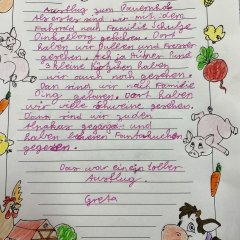 Ausflug zum Bauernhof
Als erster sind wir mit dem
Fahrrad nach Familie Schulze
gefahren. Dort
haben wir Bullen und
gesehen. Ach ja Hühner und
3 kleine Kätzchen haben
wir auch noch gesehen.
Dan sind wir nach Familie
Ding gefahren. Dort haben
wir viele Schweine gesehen.
Dann sind wir zu den
Alpakas gegangen und
haben leckeren
gegessen.
Das war ein toller
Ausflug.
Greta